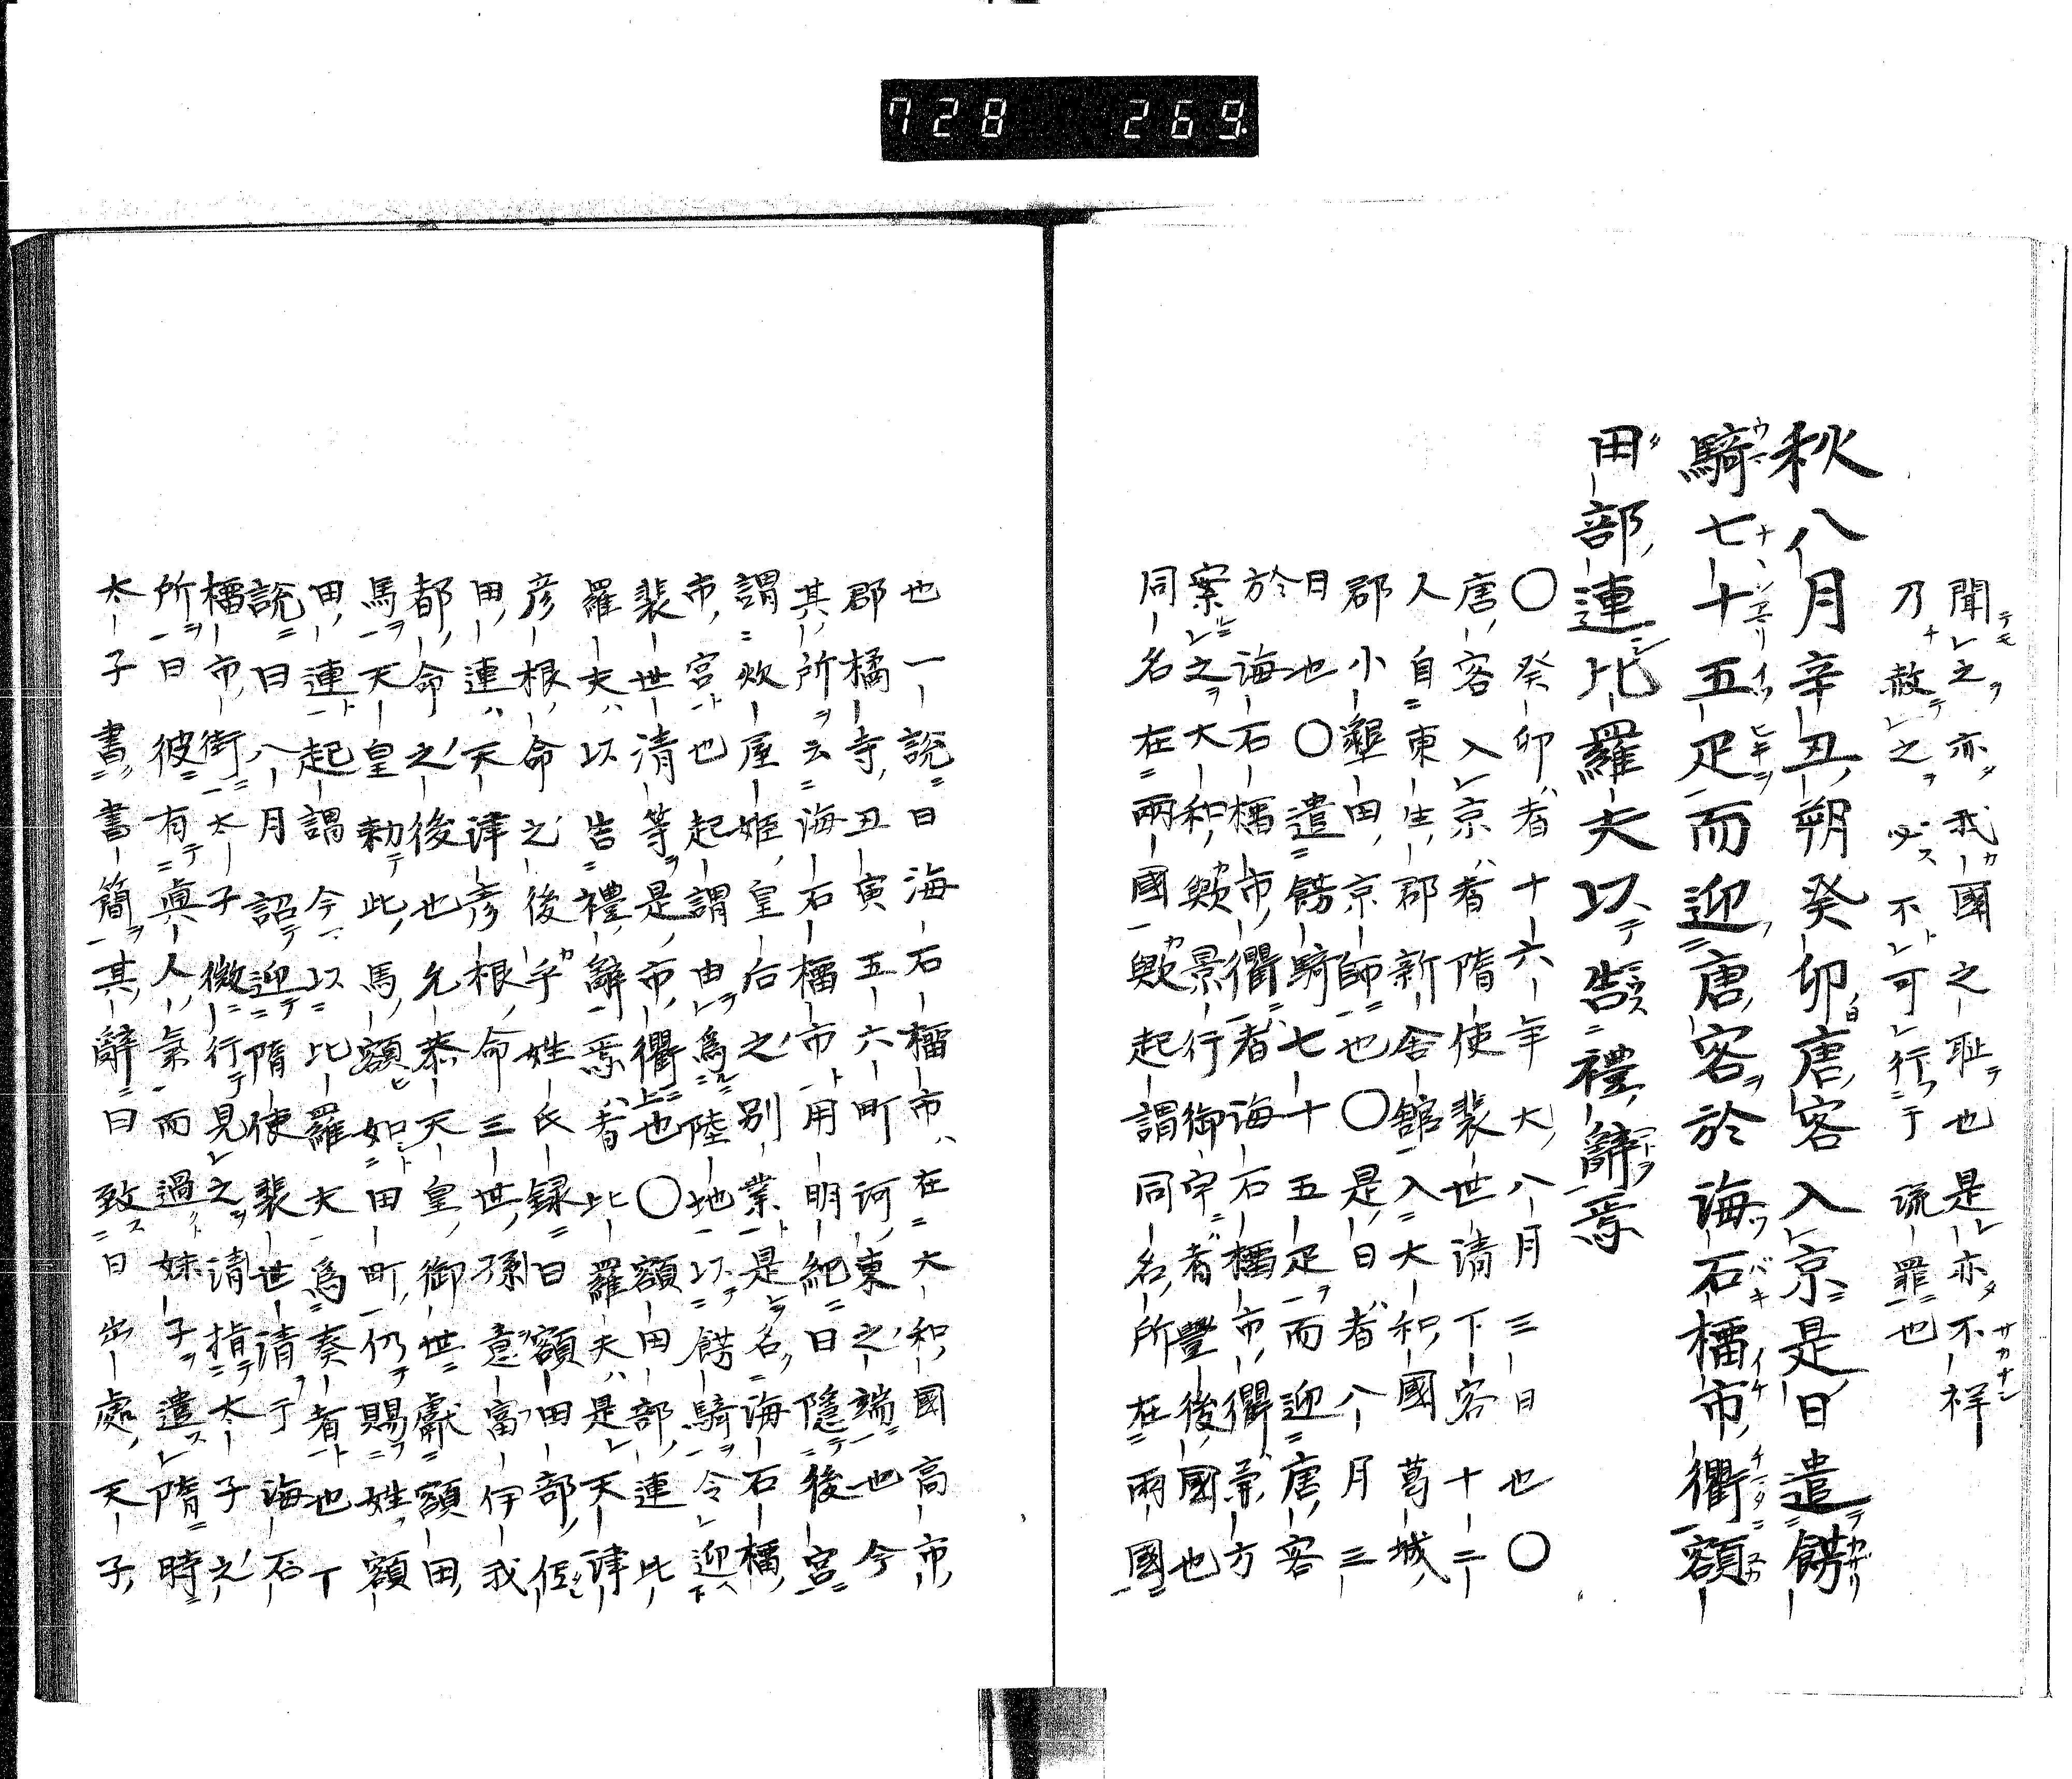 728 269.
聞之亦我國之耻也是亦不祥
乃赦之必不可行于流罪也
秋八月辛丑朔癸卯唐客入京是日遣餝
騎七十五疋而迎唐客於海石榴市衢額
田部連比羅夫以告禮辭焉
〇癸卯者十六年大八月三日也〇
唐客入京者隋使裴世清下客十二
人自東生郡新舍館入大和國葛城
郡小墾田京師也〇是日者八月三
日也〇遣餝騎七十五疋而迎唐客
於海石榴市衢者海石榴市衢棠方
案之大和歟景行御宇者豐後國也
同名在兩國歟起謂同名所在兩國
也一說曰海石榴市在大和國高市
郡橘寺丑寅五六町河東之端也今
其所云海石榴市用明紀曰隱後宮
謂炊屋姬皇后之別業是名海石榴
市宮也起謂由爲陸地以餝騎令迎
裴世清等是市衢也〇額田部連比
羅夫以告禮辭焉者比羅夫是天津
彥根命之後乎姓氏録曰額田部
田連天津彥根命三世孫意富伊我
都命之後也允恭天皇御世獻額田
馬天皇勅此馬額如田町仍賜姓額
田連起謂今以比羅夫爲奏者也一
說曰八月詔迎隋使裴世清于海石
榴市街太子微行見之清指太子之
所曰彼有眞人氣而過妹子遣隋時
太子書書簡其辭曰致日出處天子